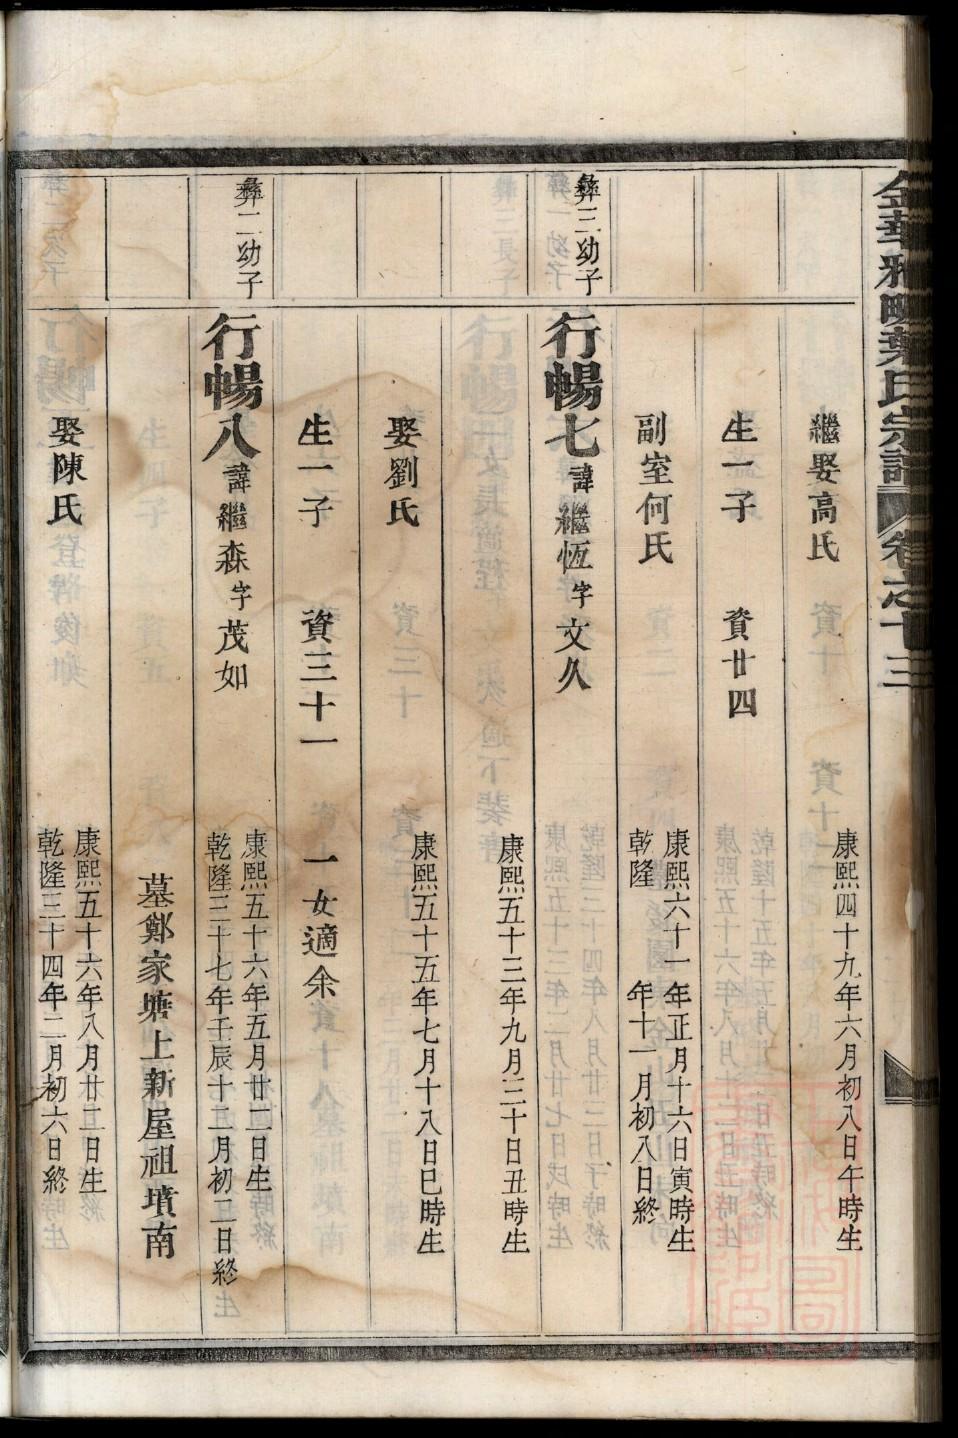 金華雅畈葉氏宗譜 卷之十三
繼娶高氏 康熙四十九年六月初八日午時生
生一子 資廿四
副室何氏 康熙六十一年正月十六日寅時生
乾隆 年十一月初八日終
彝三幼子 行暢七 諱繼恆 字文久
康熙五十三年九月三十日丑時生
娶劉氏 康熙五十五年七月十八日巳時生
生一子 資三十一 一女適余
彝二幼子 行暢八 諱繼森 字茂如 康熙五十六年五月廿一日生
乾隆三十七年壬辰十二月初二日終
墓鄭家塘上新屋祖墳南
娶陳氏 康熙五十六年八月廿三日生
乾隆三十四年二月初六日終